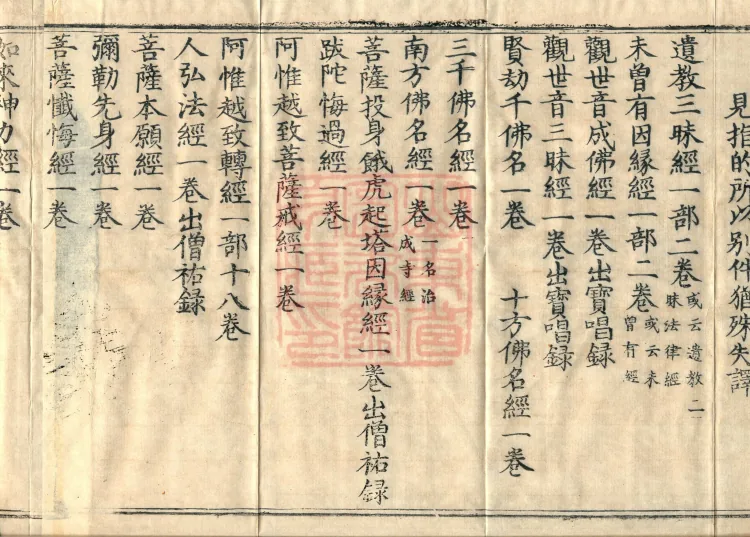 見指的所以別件猶殊失譯
遺教三昧經一部二卷或云遺教二昧法律經
未曾有因緣經一部二卷或云未曾有經
觀世音成佛經一卷出寶唱録
觀世音三昧經一卷出寶唱録
賢劫千佛名一卷 十方佛名經一卷
三千佛名經一卷
南方佛名經一卷一名治成寺經
菩薩投身餓虎起塔因緣經一卷出僧祐録
跋陀悔過經一卷
阿惟越致菩薩戒經一卷
阿惟越致轉經一部十八卷
人弘法經一卷出僧祐録
菩薩本願經一卷
彌勒先身經一卷
菩薩懺悔經一卷
如來神力經一卷